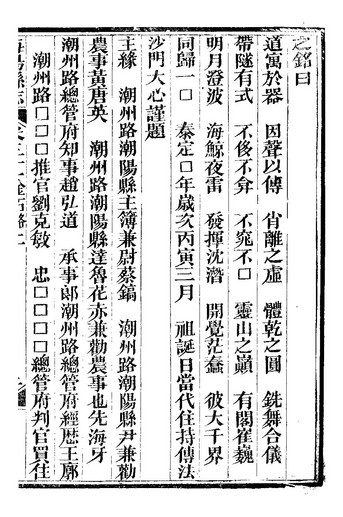 之銘曰
道寓於器　因聲以傳　肖離之虛　體乾之圓　銑舞合儀
帶隧有式　不侈不弇　不窕不□　靈山之巔　有閣崔巍
明月澄波　海鯨夜雷　發揮沈潛　開覺茫蠢　彼大千界
同歸一□　泰定□年歲次丙寅三月　祖誕日當代住持傳法
沙門大心謹題
主緣　潮州路潮陽縣主簿兼尉蔡鎬　潮州路潮陽縣尹兼勸
農事黃唐英　潮州路潮陽縣達魯花赤兼勸農事也先海牙
潮州路總管府知事趙弘道　承事郎潮州路總管府經歷王廓
潮州路□□□推官劉克敏　忠□□□□總管府判官買住
海陽縣志　卷三十一金石略二